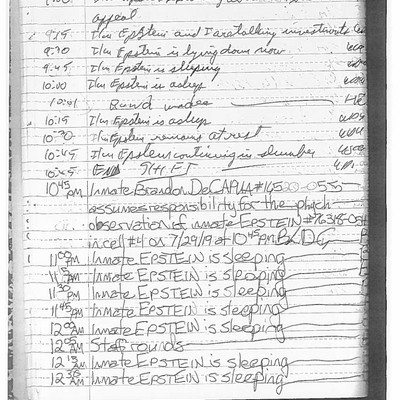 appeal
9:15 I/m Epstein and I are talking investments
9:30 I/m Epstein is lying down now
9:45 I/m Epstein is sleeping
10:00 I/m Epstein is asleep
10:01 Round made
10:15 I/m Epstein is asleep
10:30 I/m Epstein remains at rest
10:45 I/m Epstein continuing in slumber
10:45 End
10 45 pm Inmate Brandon
assumes responsibility for the psych
observation of inmate EPSTEIN #76318-054
in cell #4 on 7/29/19 at 10 45 pm
11 00 PM Inmate EPSTEIN is sleeping
11 15 PM Inmate EPSTEIN is sleeping
11 30 PM Inmate EPSTEIN is sleeping
11 45 PM Inmate EPSTEIN is sleeping
12 00 AM Inmate EPSTEIN is sleeping
12 05 AM Staff rounds
12 AM Inmate EPSTEIN is sleeping
12 AM Inmate EPSTEIN is sleeping